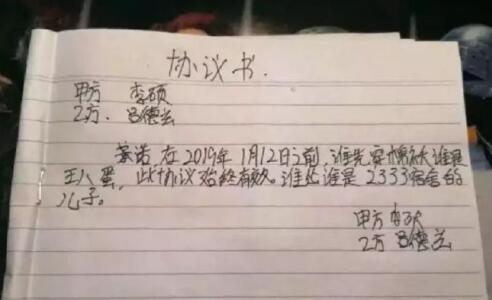 协议书.
甲方 李硕
乙方. 吕德兰
承诺,在2019年1月12日之前,谁先穿棉袄谁是
王八蛋,此协议始终有效。谁违谁是2333宿舍的
儿子。
甲方 李硕
乙方 吕德兰